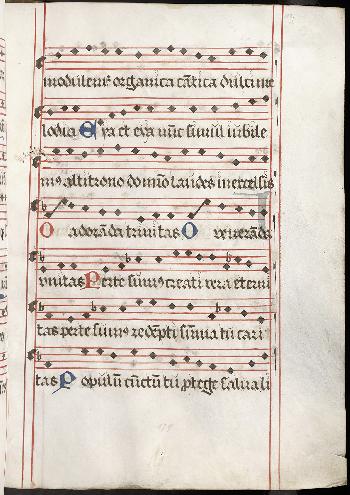 modulems organica cãtica dulci me
lodia Eya et eya nũc simul iubile
m9 altitrono domĩo laudes in excelsis
O adorãda trinitas O venerãda
unitas Per te sum9 creati vera eterni
tas per te sum9 redẽpti summa tu cari
tas Populũ cũctũ tu ꝓtege salva li